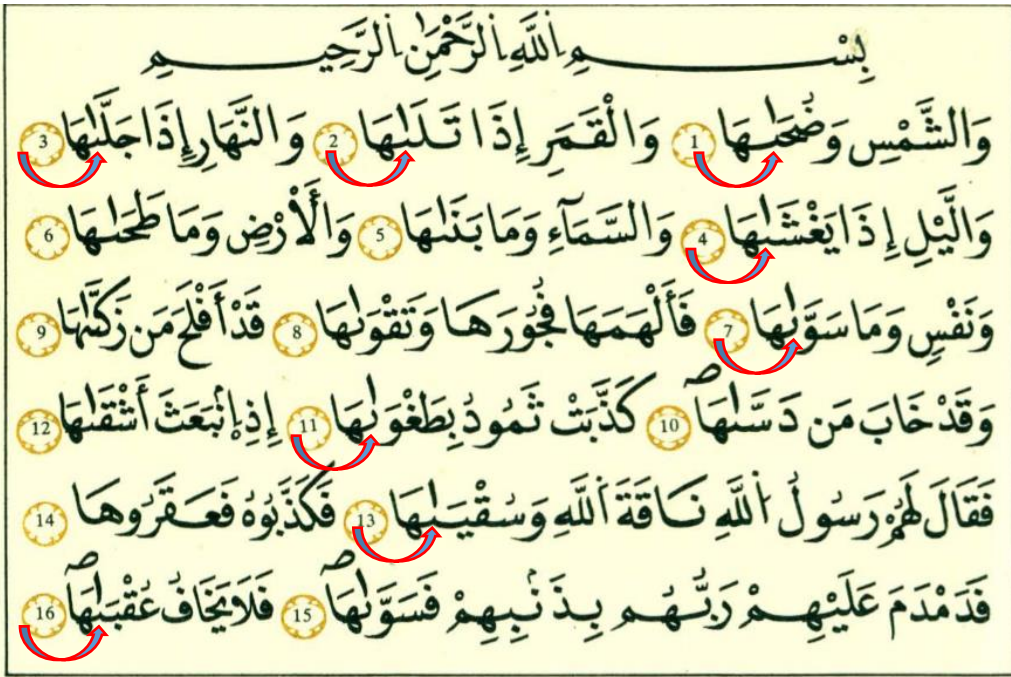 بِسْمِ اِ۬للَّهِ اِ۬لرَّحْمَٰنِ اِ۬لرَّحِيمِ
وَالشَّمْسِ وَضُحَىٰهَا 1 وَالْقَمَرِ إِذَا تَلَىٰهَا 2 وَالنَّهَارِ إِذَا جَلَّىٰهَا 3
وَالَّيْلِ إِذَا يَغْشَىٰهَا 4 وَالسَّمَآءِ وَمَا بَنَىٰهَا 5 وَالْأَرْضِ وَمَا طَحَىٰهَا 6
وَنَفْسٍ وَمَا سَوَّىٰهَا 7 فَأَلْهَمَهَا فُجُورَهَا وَتَقْوَىٰهَا 8 قَدْ أَفْلَحَ مَن زَكَّىٰهَا 9
وَقَدْ خَابَ مَن دَسَّىٰهَاۖ 10 كَذَّبَتْ ثَمُودُ بِطَغْوَىٰهَا 11 إِذِ اِ۪نۢبَعَثَ أَشْقَىٰهَا 12
فَقَالَ لَهُمْ رَسُولُ اُ۬للَّهِ نَاقَةَ اَ۬للَّهِ وَسُقْيَىٰهَا 13 فَكَذَّبُوهُ فَعَقَرُوهَا 14
فَدَمْدَمَ عَلَيْهِمْ رَبُّهُم بِذَنۢبِهِمْ فَسَوَّىٰهَاۖ 15 فَلَا يَخَافُ عُقْبَىٰهَاۖ 16